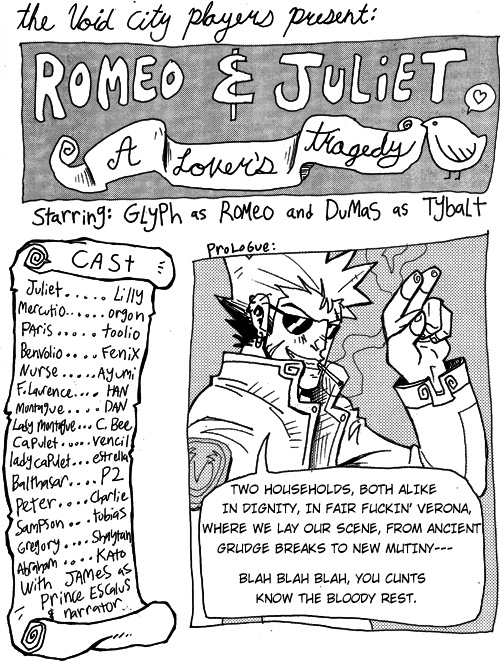 the Void city players present:
ROMEO & JULIET
A Lover's tragedy
Starring: GLYPh as ROMEO and DuMAS as TYbALT
CAST
Juliet...... Lilly
Mercutio..... orgon
PAris..... toolio
Benvolio.... FeniX
Nurse..... Ayumi
F. Laurence.... HAN
Montague.... DAN
Lady Montague... C. Bee
CaPuLet..... vencil
lady caPuLet... estrella
Balthasar.... P2
Peter.... Charlie
Sampson.... tobias
Gregory.... Shaytan
Abraham.... KAto
With JAMES as
Prince EScaLus
& narrator.
ProLogue:
TWO HOUSEHOLDS, BOTH ALIKE
IN DIGNITY, IN FAIR FUCKIN' VERONA,
WHERE WE LAY OUR SCENE, FROM ANCIENT
GRUDGE BREAKS TO NEW MUTINY---
BLAH BLAH BLAH, YOU CUNTS
KNOW THE BLOODY REST.